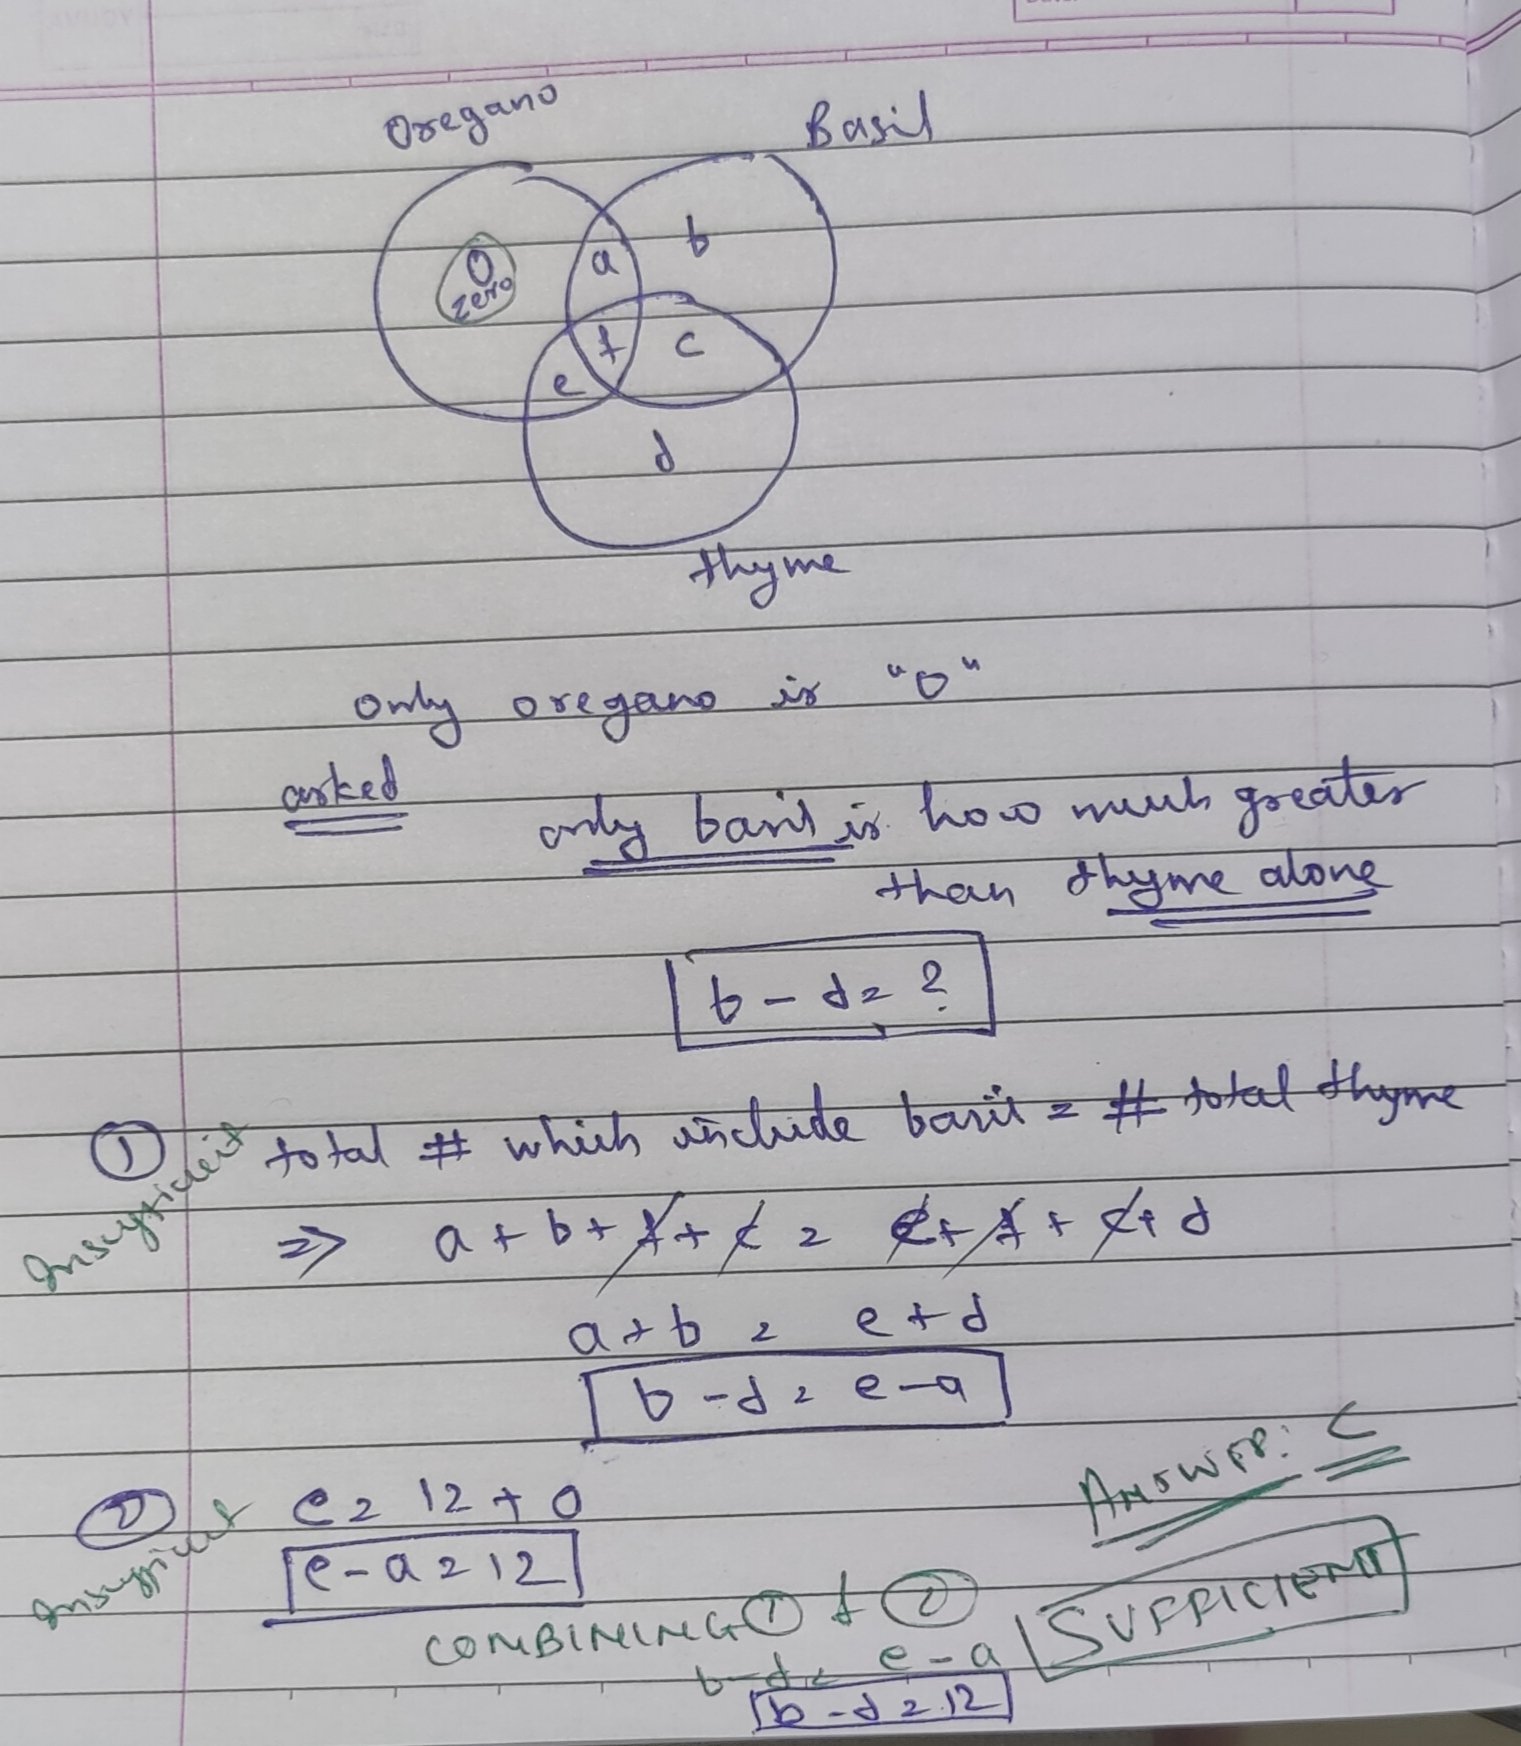 Oregano
Basil
0
zero
a
b
f
c
e
d
thyme
only oregano is "0"
asked
only basil is how much greater
than thyme alone
b - d = ?
① total # which include basil = # total thyme
Insufficient
⇒ a + b + f + c = e + f + c + d
a + b = e + d
b - d = e - a
② e = 12 + a
Insufficient
e - a = 12
ANSWER: C
COMBINING ① & ②
SUFFICIENT
b - d = e - a
b - d = 12